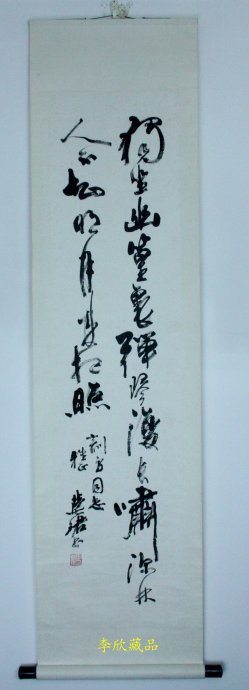 獨坐幽篁裏彈琴復長嘯深林
人不知明月來相照
方同志
正
李欣藏品